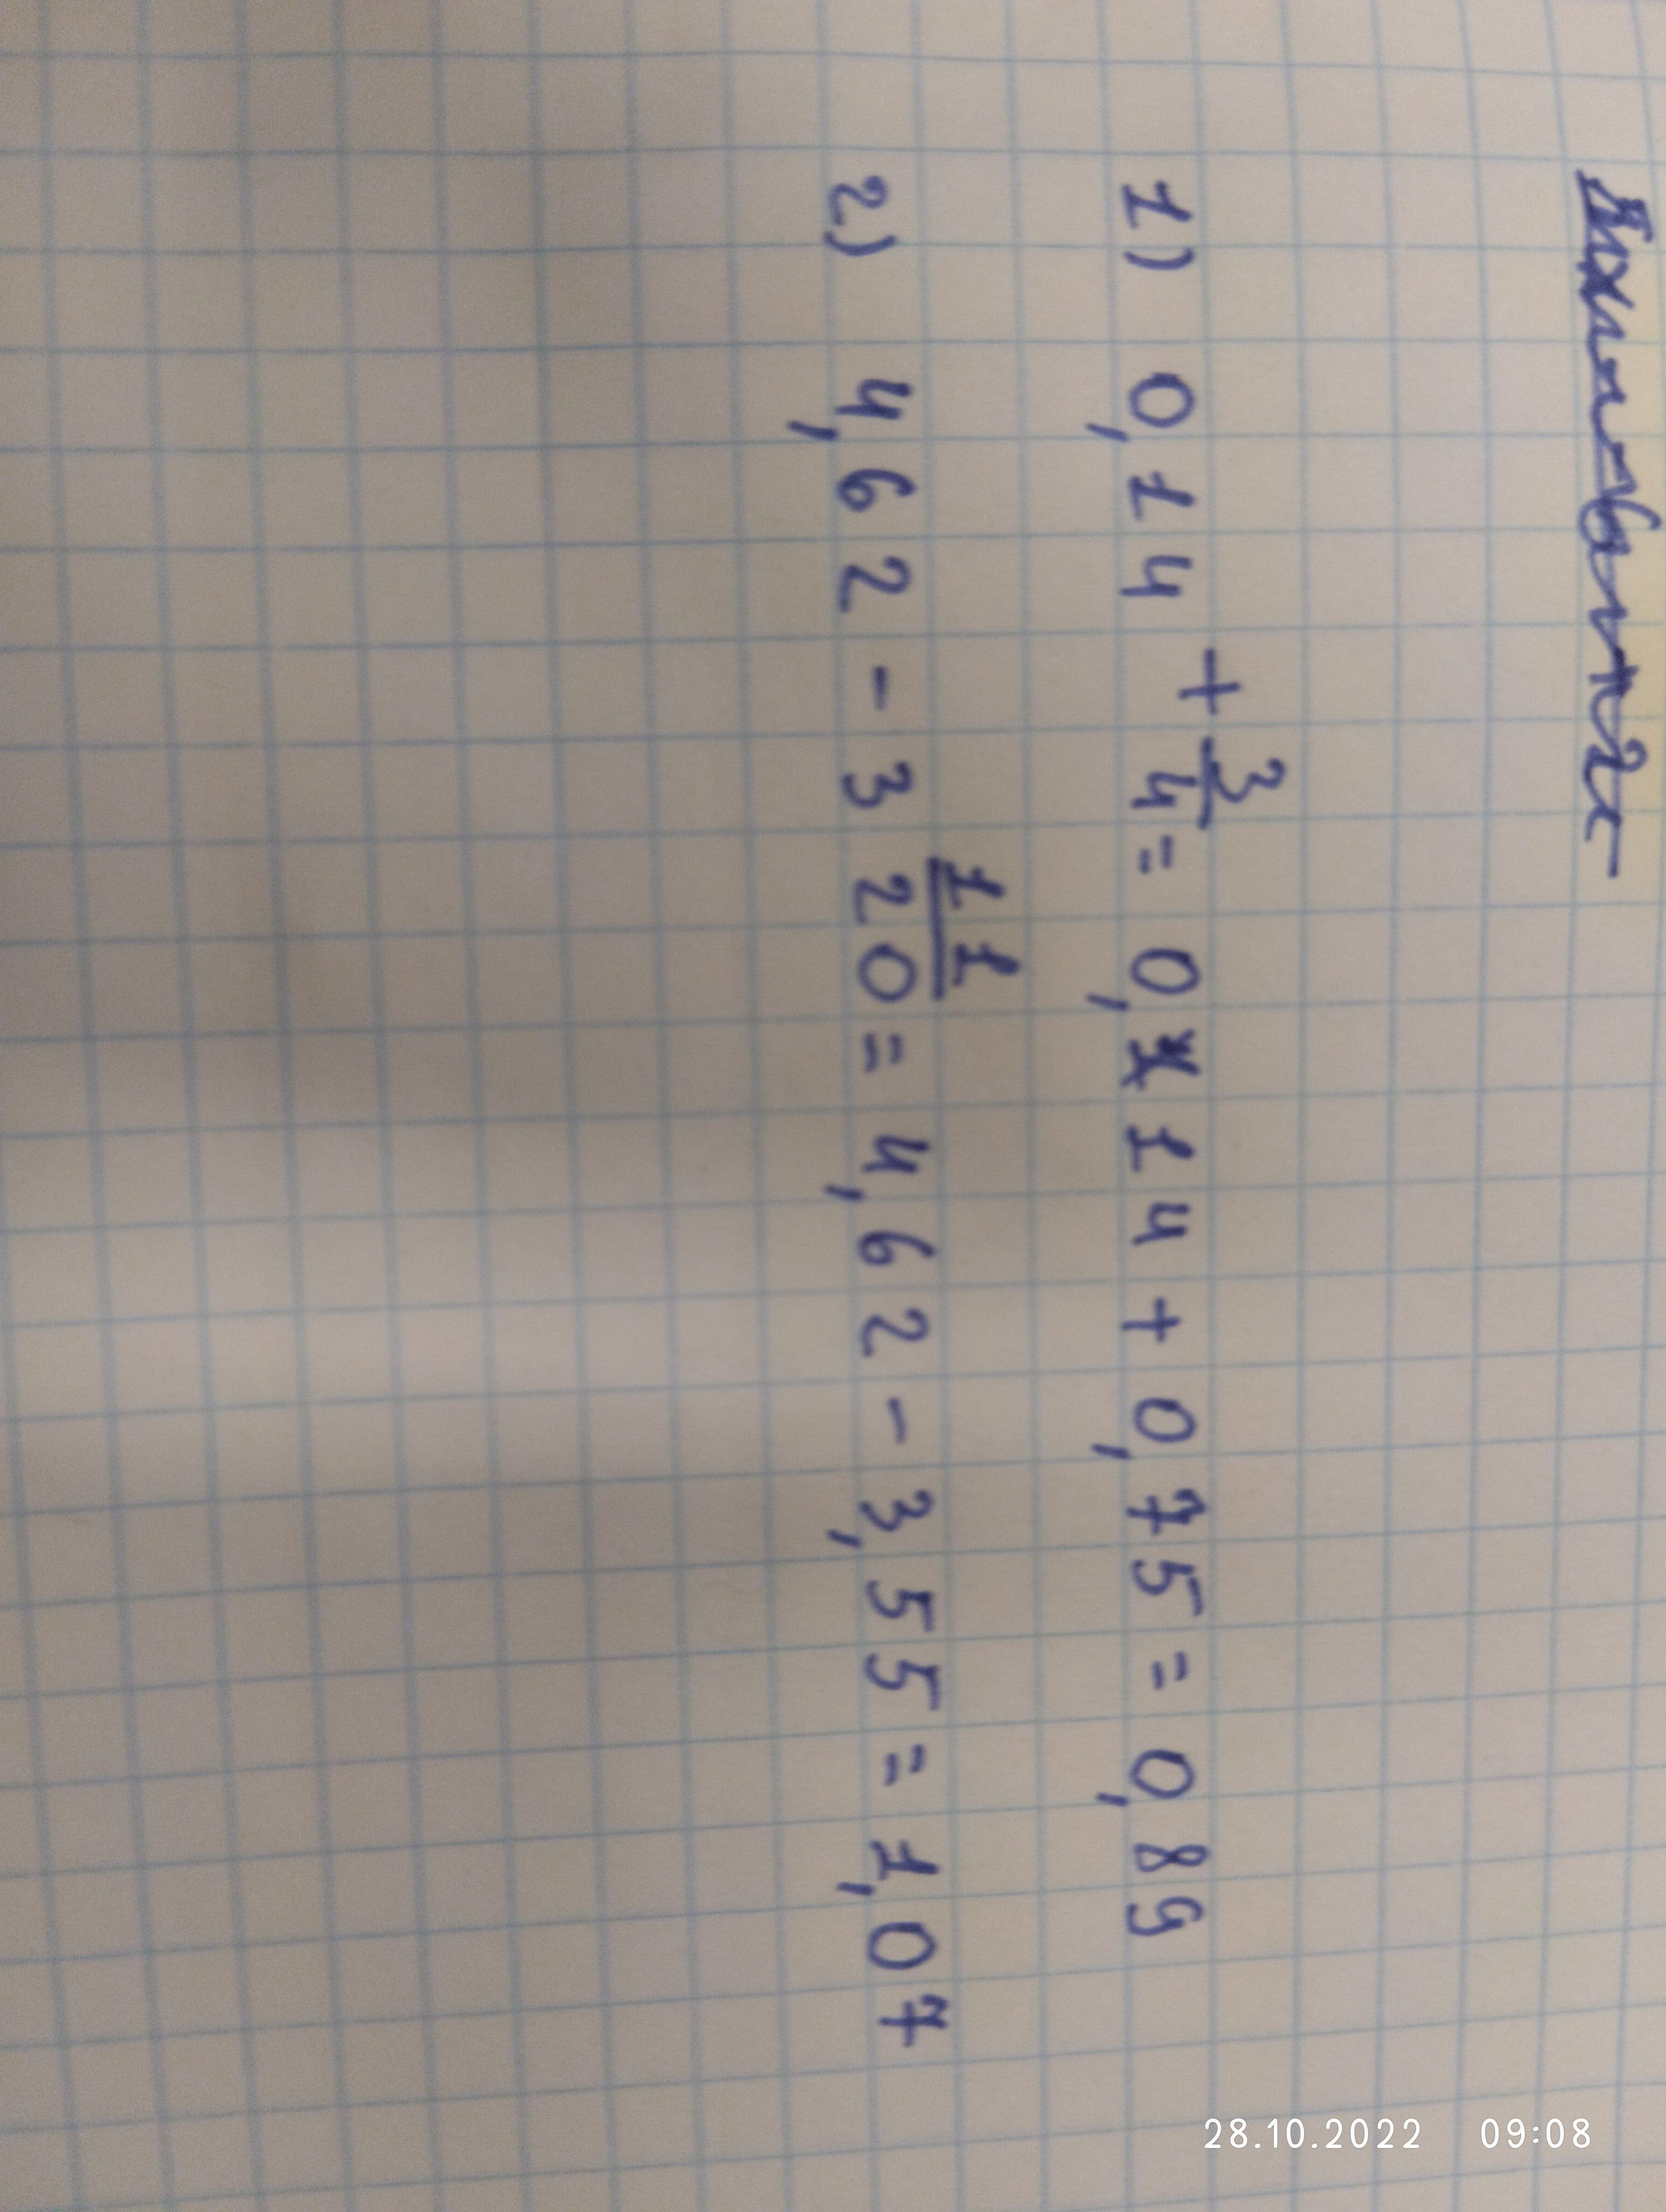 1) 0,14 + 3/4 = 0,14 + 0,75 = 0,89
2) 4,62 - 3 11/20 = 4,62 - 3,55 = 1,07
28.10.2022 09:08